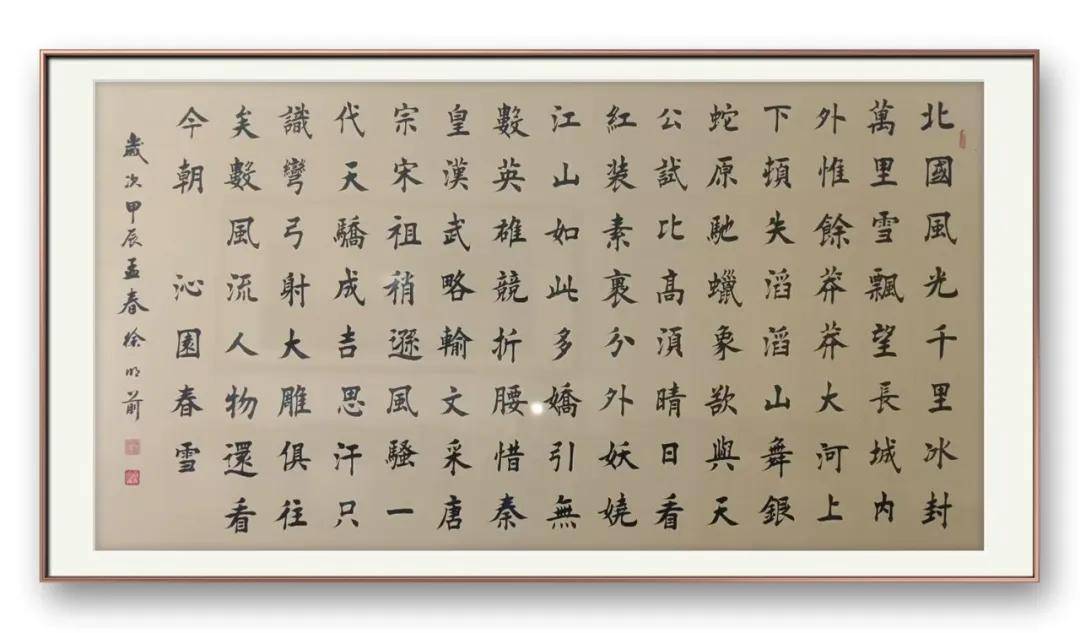 北國風光千里冰封
萬里雪飄望長城內
外惟餘莽莽大河上
下頓失滔滔山舞銀
蛇原馳蠟象欲與天
公試比高須晴日看
紅裝素裹分外妖嬈
江山如此多嬌引無
數英雄競折腰惜秦
皇漢武略輸文采唐
宗宋祖稍遜風騷一
代天驕成吉思汗只
識彎弓射大雕俱往
矣數風流人物還看
今朝 沁園春雪
歲次甲辰孟春徐明前